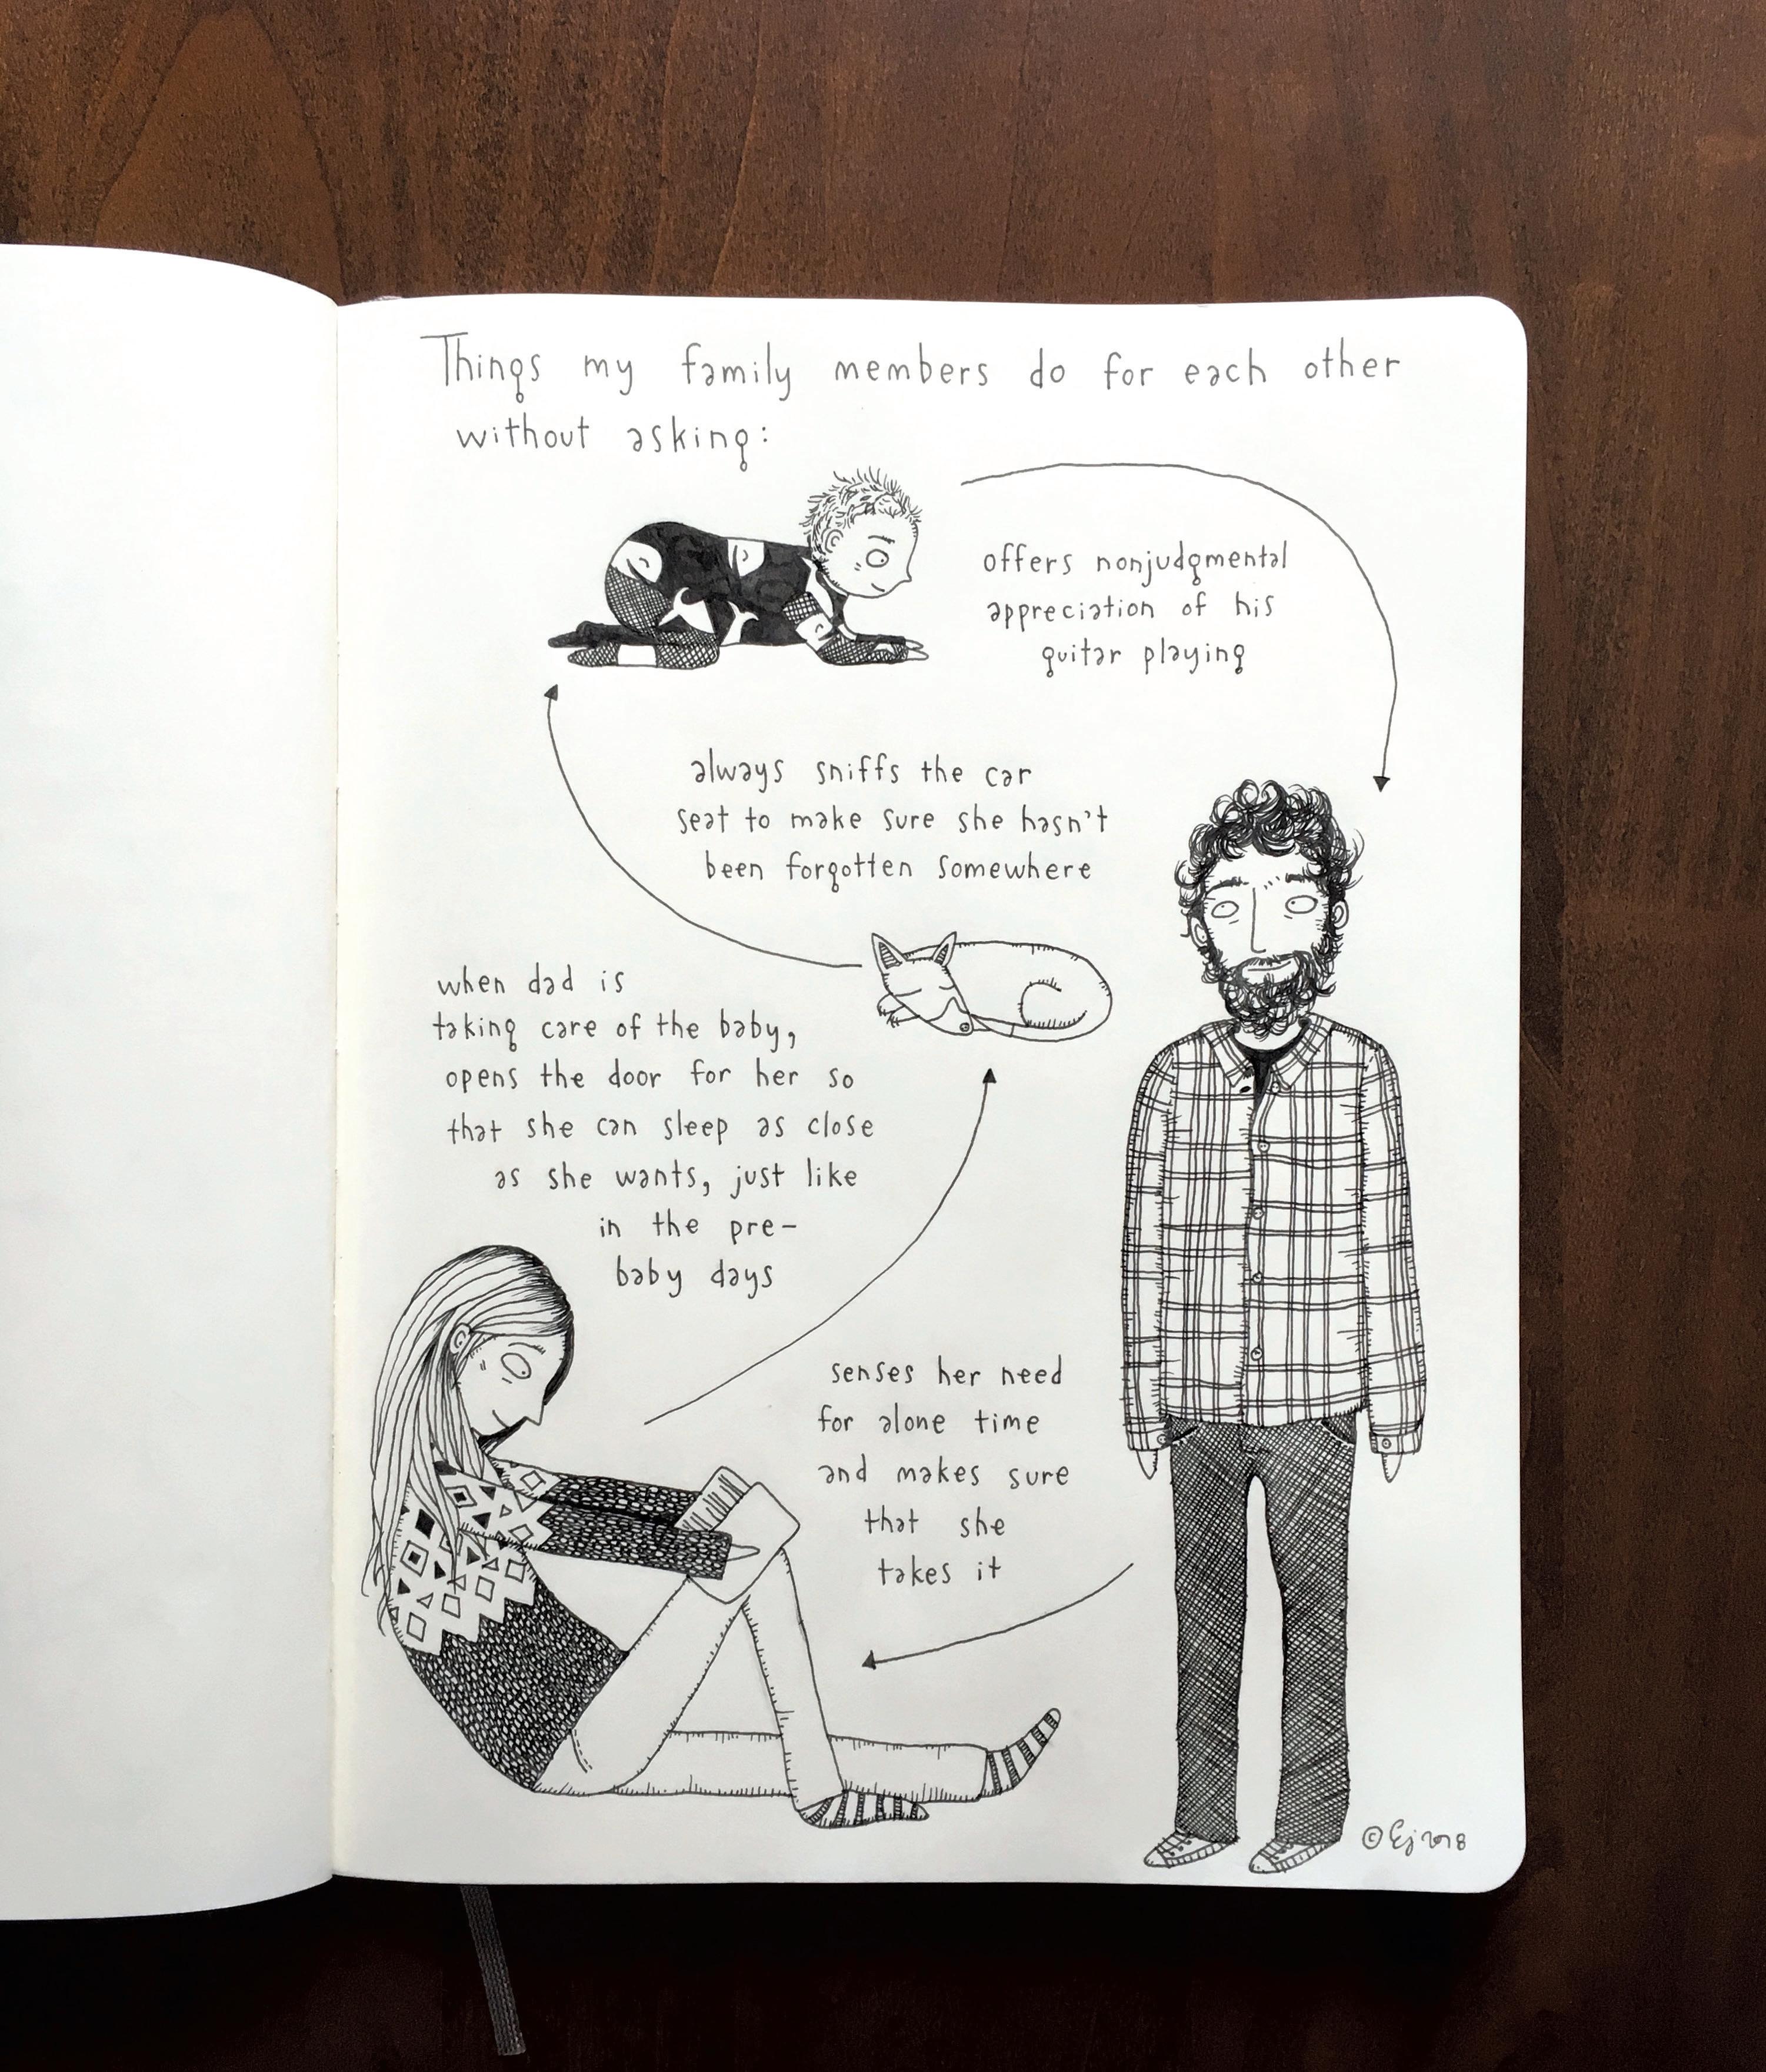 Things my family members do for each other
without asking:
offers nonjudgmental
appreciation of his
guitar playing
always sniffs the car
seat to make sure she hasn't
been forgotten somewhere
when dad is
taking care of the baby,
opens the door for her so
that she can sleep as close
as she wants, just like
in the pre-
baby days
senses her need
for alone time
and makes sure
that she
takes it
© Ej 2018